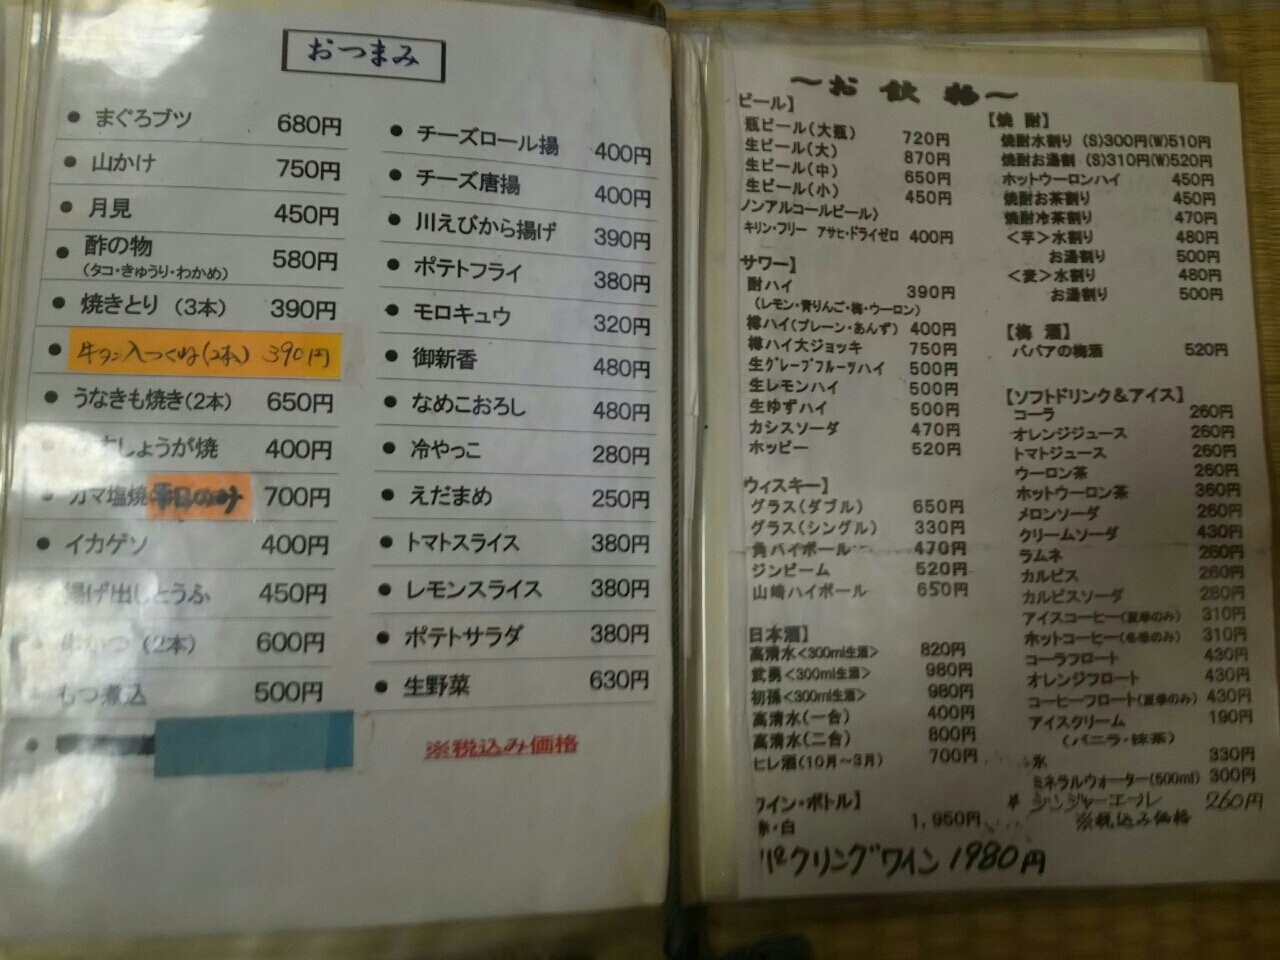 おつまみ
● まぐろブツ 680円
● 山かけ 750円
● 月見 450円
● 酢の物 580円
(タコ・きゅうり・わかめ)
● 焼きとり (3本) 390円
● 牛タン入つくね(2本) 390円
● うなきも焼き(2本) 650円
しょうが焼 400円
● カマ塩焼 平日のみ 700円
● イカゲソ 400円
揚げ出しとうふ 450円
(2本) 600円
もつ煮込 500円
● チーズロール揚 400円
● チーズ唐揚 400円
● 川えびから揚げ 390円
● ポテトフライ 380円
● モロキュウ 320円
● 御新香 480円
● なめこおろし 480円
● 冷やっこ 280円
● えだまめ 250円
● トマトスライス 380円
● レモンスライス 380円
● ポテトサラダ 380円
● 生野菜 630円
※税込み価格
～お飲物～
ビール】
瓶ビール(大瓶) 720円
生ビール(大) 870円
生ビール(中) 650円
生ビール(小) 450円
ノンアルコールビール)
キリン・フリー アサヒ・ドライゼロ 400円
サワー】
酎ハイ 390円
(レモン・青りんご・梅・ウーロン)
樽ハイ(プレーン・あんず) 400円
樽ハイ大ジョッキ 750円
生グレープフルーツハイ 500円
生レモンハイ 500円
生ゆずハイ 500円
カシスソーダ 470円
ホッピー 520円
ウィスキー】
グラス(ダブル) 650円
グラス(シングル) 330円
角ハイボール 470円
ジンビーム 520円
山崎ハイボール 650円
日本酒】
高清水<300ml生酒> 820円
武勇<300ml生酒> 980円
初孫<300ml生酒> 980円
高清水(一合) 400円
高清水(二合) 800円
ヒレ酒(10月～3月) 700円
ワイン・ボトル】
赤・白 1,950円
クリングワイン 1980円
【焼 酎】
焼酎水割り (S)300円(W)510円
焼酎お湯割 (S)310円(W)520円
ホットウーロンハイ 450円
焼酎お茶割り 450円
焼酎冷茶割り 470円
<芋>水割り 480円
お湯割り 500円
<麦>水割り 480円
お湯割り 500円
【梅 酒】
ババアの梅酒 520円
【ソフトドリンク&アイス】
コーラ 260円
オレンジジュース 260円
トマトジュース 260円
ウーロン茶 260円
ホットウーロン茶 360円
メロンソーダ 260円
クリームソーダ 430円
ラムネ 260円
カルピス 260円
カルピスソーダ 280円
アイスコーヒー(夏季のみ) 310円
ホットコーヒー(冬季のみ) 310円
コーラフロート 430円
オレンジフロート 430円
コーヒーフロート(夏季のみ) 430円
アイスクリーム 190円
(バニラ・抹茶)
氷 330円
ミネラルウォーター(500ml) 300円
ジンジャーエール 260円
※税込み価格